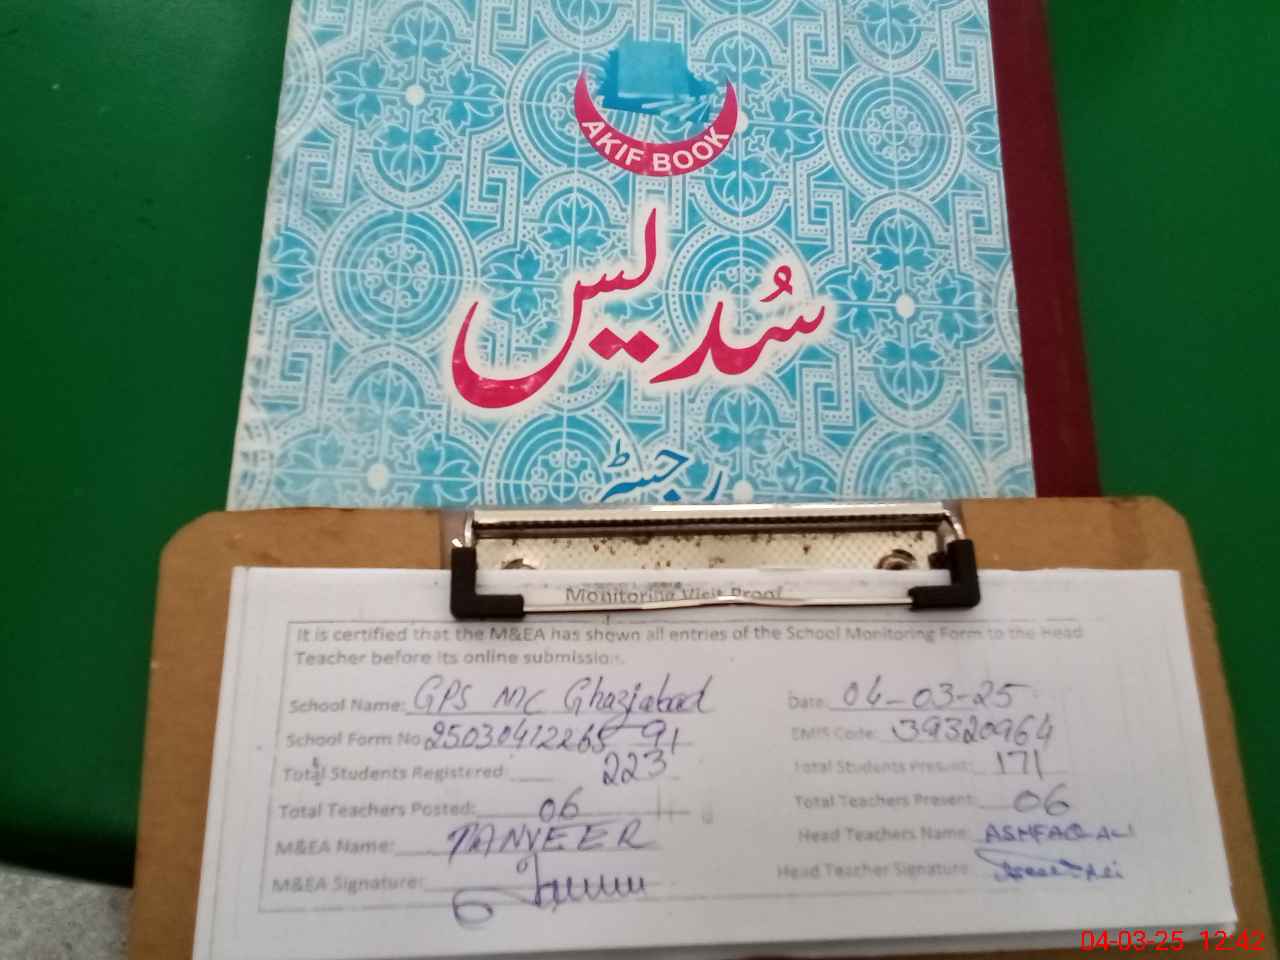 AKIF BOOK
سُدیس
رجسٹر
Monitoring Visit Proof
It is certified that the M&EA has shown all entries of the School Monitoring Form to the Head
Teacher before its online submission.
School Name: GPS MC Ghaziabad Date: 04-03-25
School Form No 25030412265 91 EMIS Code: 39320964
Total Students Registered: 223 Total Students Present: 171
Total Teachers Posted: 06 Total Teachers Present: 06
M&EA Name: TANVEER Head Teachers Name: ASHFAQ ALI
M&EA Signature: Head Teacher Signature:
04-03-25 12:42